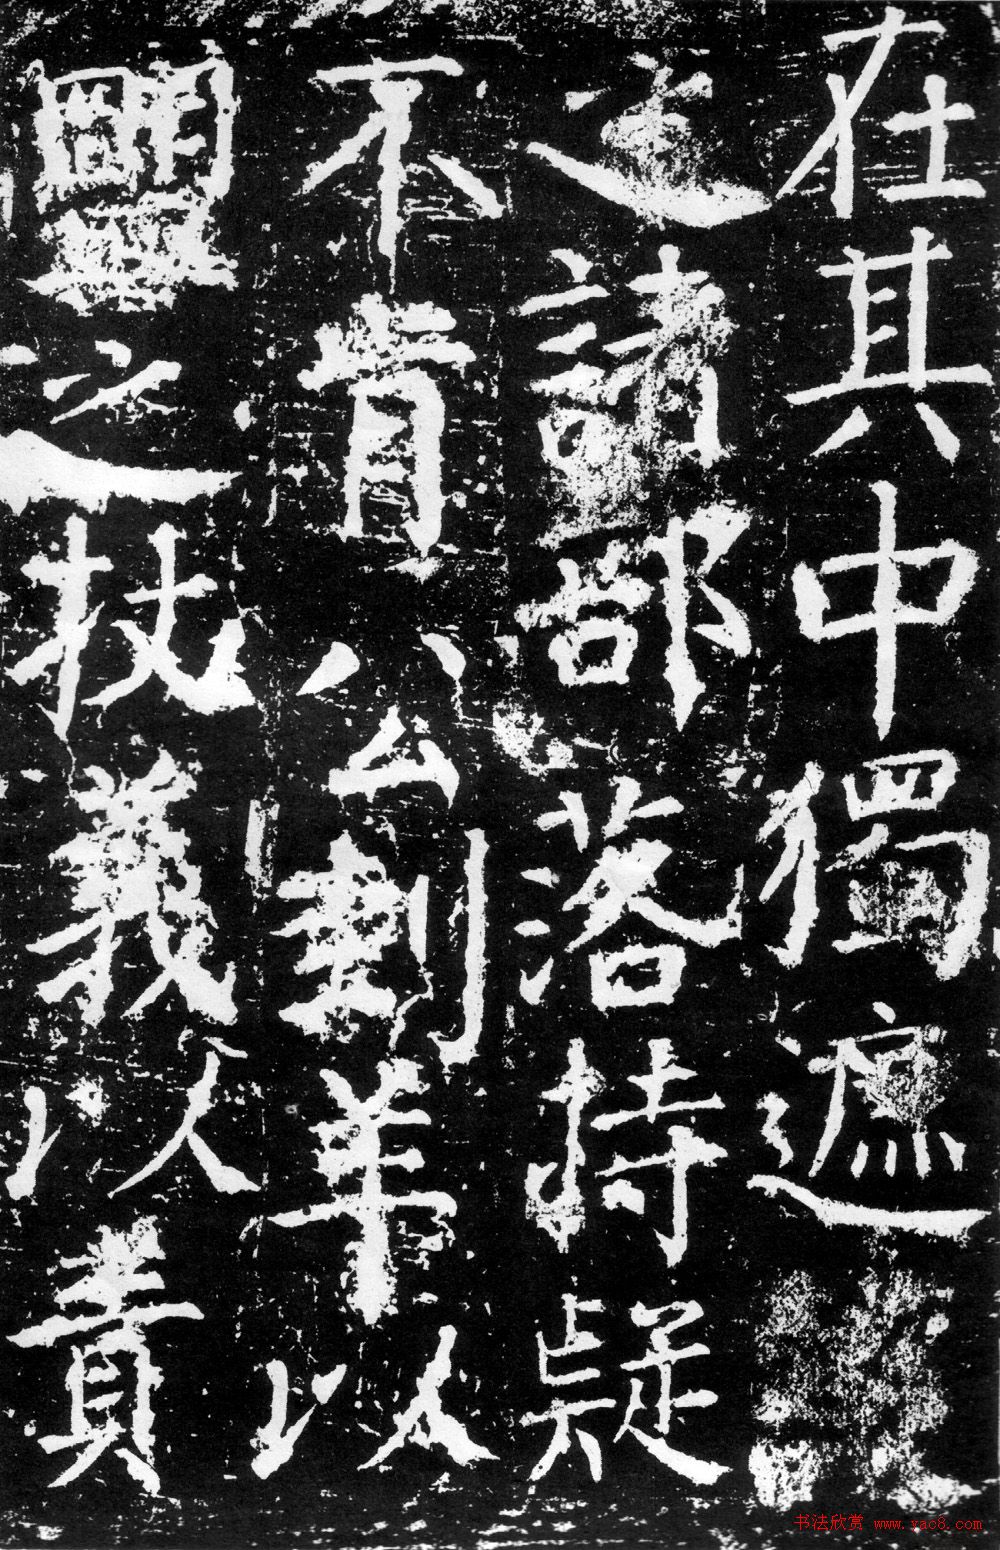 在其中獨遮
之諸部落持疑
不肯公羊以
盟之杖義以責
书法欣赏 www.yac8.com